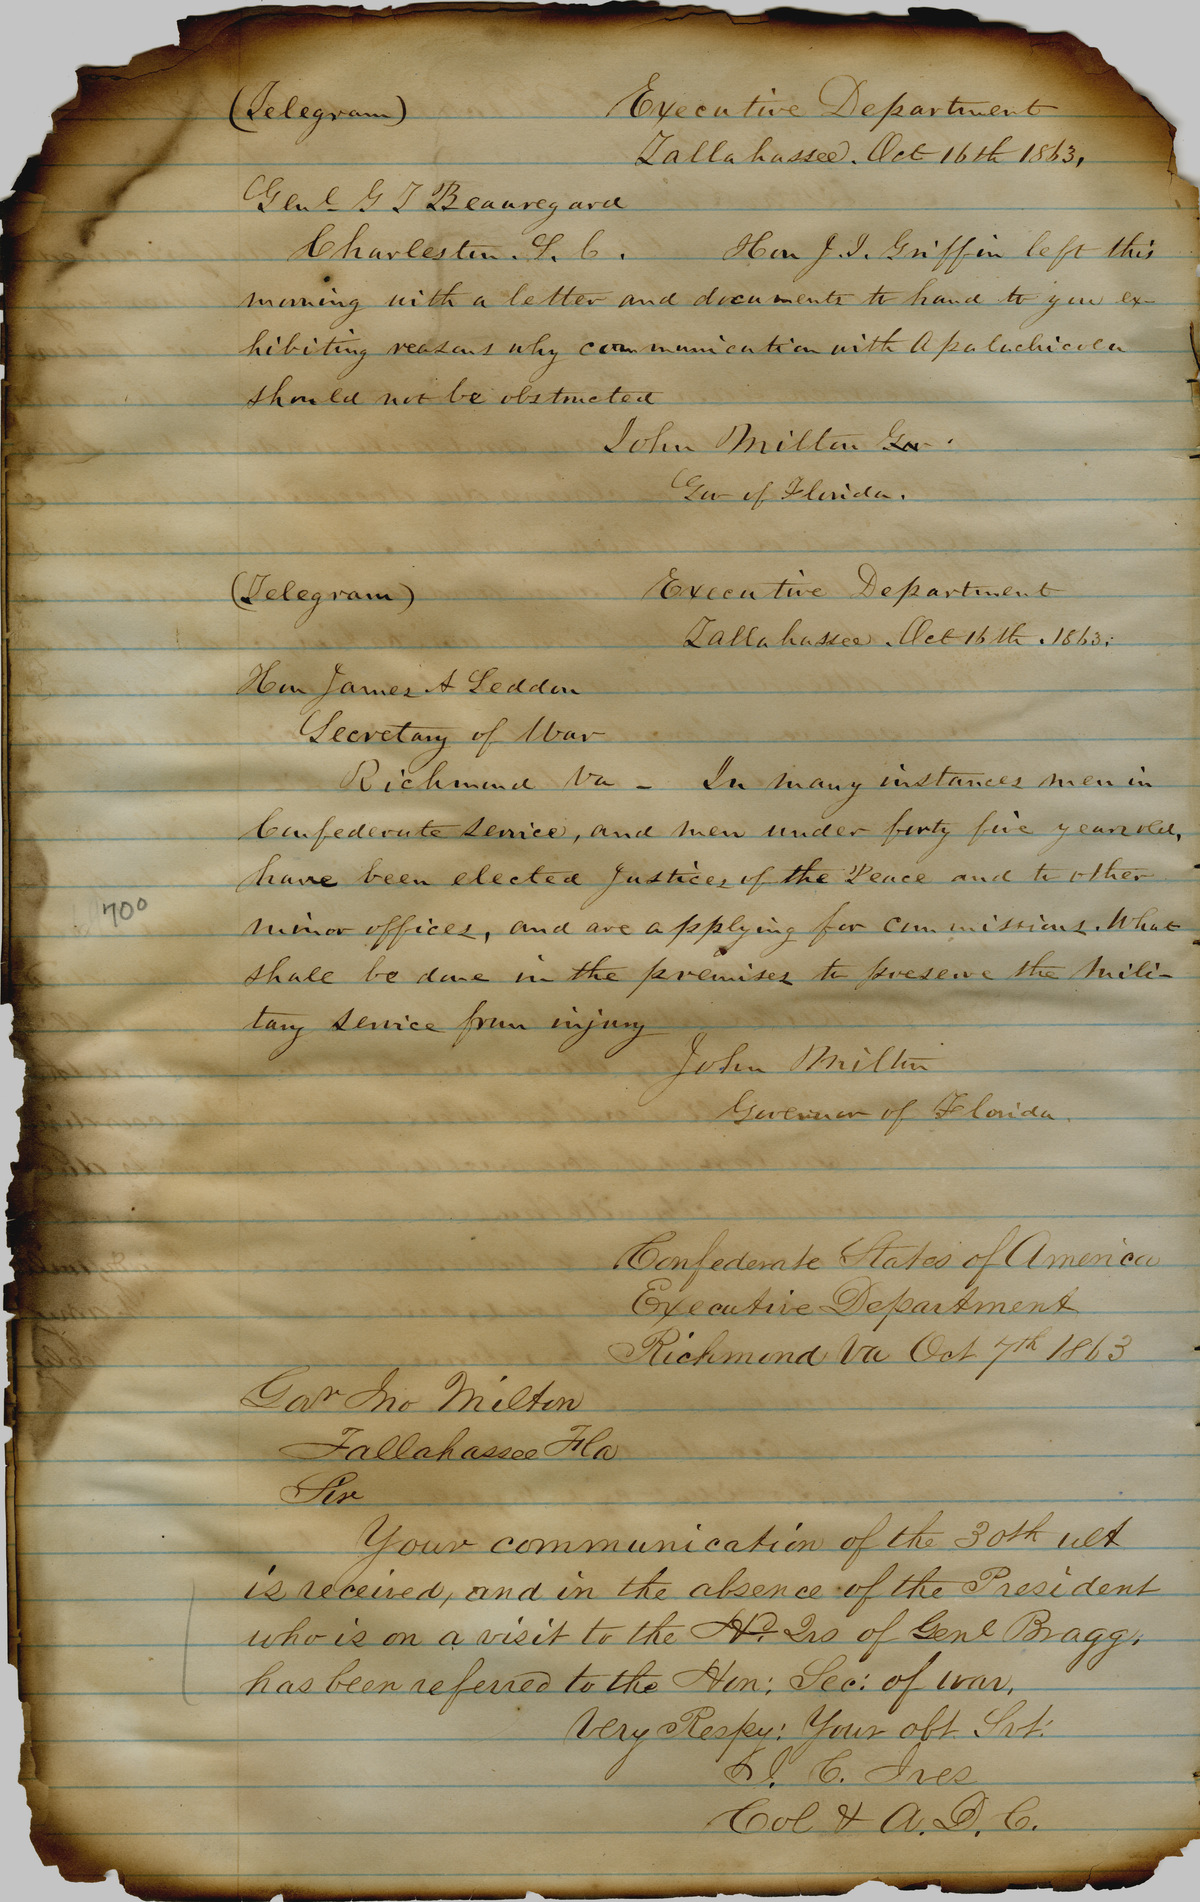 (Telegram) Executive Department
Tallahassee. Oct 16th 1863.
Genl G T Beauregard
Charleston. S. C. Hon J. J. Griffin left this
morning with a letter and documents to hand to you ex-
hibiting reasons why communication with Apalachicola
should not be obstructed
John Milton Gov.
Gov of Florida.
(Telegram) Executive Department
Tallahassee. Oct 16th. 1863.
Hon James A Seddon
Secretary of War
Richmond Va - In many instances men in
Confederate service, and men under forty five years old,
have been elected Justices of the Peace and to other
minor offices, and are applying for commissions. What
shall be done in the premises to preserve the mili-
tary service from injury
John Milton
Governor of Florida.
700
Confederate States of America
Executive Department
Richmond Va Oct 7th 1863
Govr Jno Milton
Tallahassee Fla
Sir
Your communication of the 30th ult
is received, and in the absence of the President
who is on a visit to the Hd. Qrs of Genl Bragg,
has been referred to the Hon: Sec: of war,
Very Respy: Your obt. Svt:
C. Ives
Col & A. D. C.